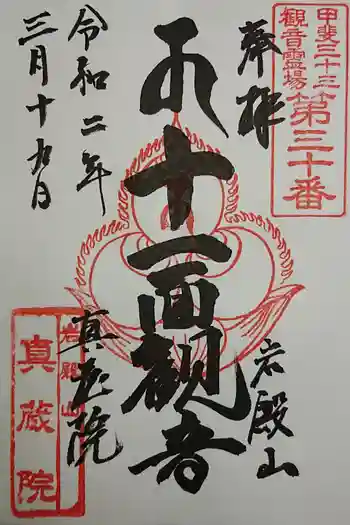 甲斐三十三ケ所
観音霊場第三十番
奉拝
岩殿山
十一面観音
令和二年
三月十九日
真蔵院
岩殿山
真蔵院